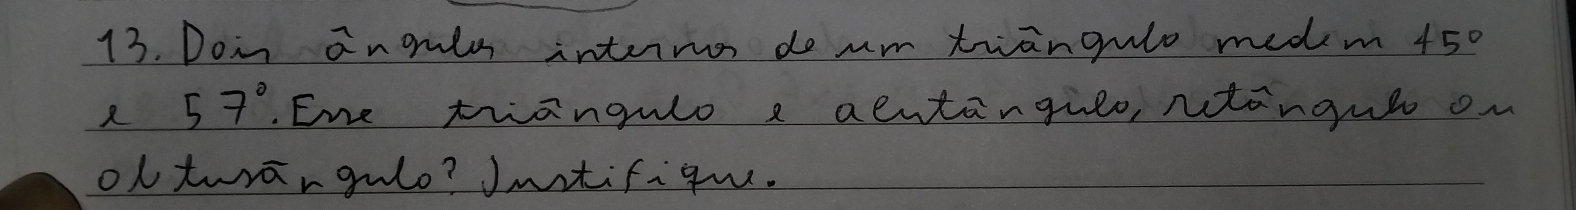 13. Dois ângulos internos de um triângulo medem 45°
e 57°. Esse triângulo e acutângulo, retângulo ou
obtusângulo? Justifique.